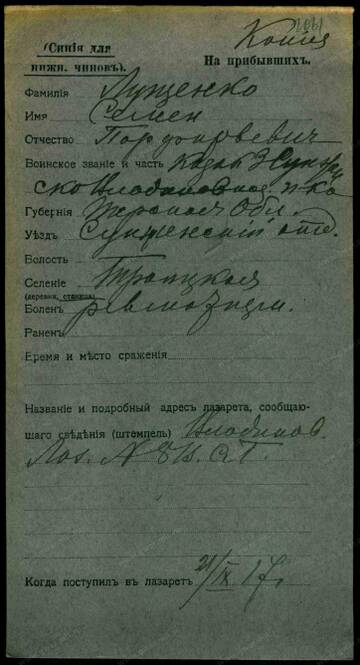 Копия
(Синія для
нижн. чиновъ).
На прибывшихъ.
Фамилія Луценко
Имя Семен
Отчество Порфирьевич
Воинское званіе и часть Казак 3 Сунжен
ско Владикавказ. п-ка
Губернія Терская Обл.
Уѣздъ Сунженскій отд.
Волость
Селеніе Троицкая
(деревня, станица)
Боленъ ревматизм.
Раненъ
Время и мѣсто сраженія
Названіе и подробный адресъ лазарета, сообщаю-
щаго свѣдѣнія (штемпель) Владикав.
Лаз. N 8
Когда поступилъ въ лазаретъ 21/IX 17 г.